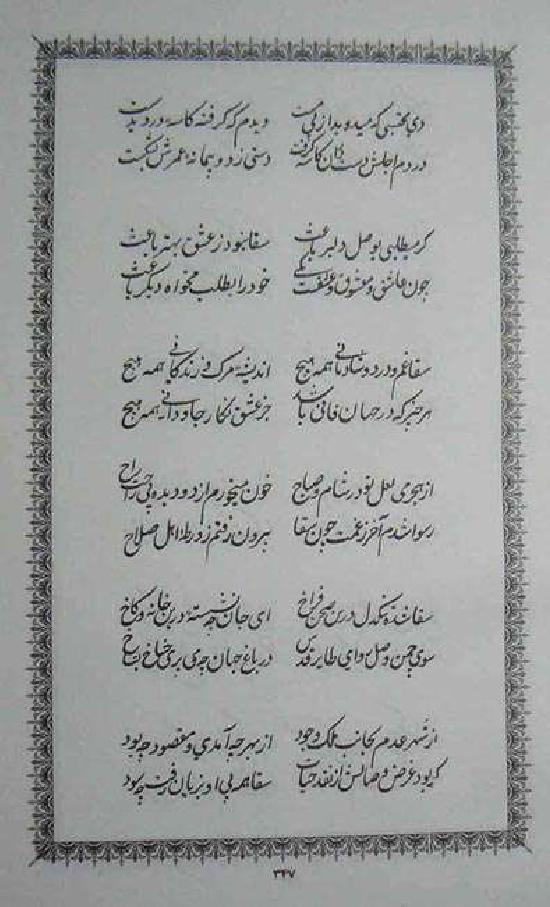 دی شخصی که میدم بدار می دیدم که گرفته کاسه در
در دم اجلش دستان کاسه گرفت دستی زد و پیمانه عمرش بشکست
گر مطلبی بوصل دلبر باعث سقا نبود ز عشق بهتر باعث
چون عاشق و معشوق و عشقت یکی خود را بطلب مخواه دیگر باعث
سقا غم و درد و شادمانی همه هیچ اندیشه مرگ و زندگانی همه هیچ
هر چیز که در جهان فانی باشد جز عشق نگار جاودانی همه هیچ
از هجر می لعل تو در شام و صباح خون میخورم از دو دیده پی راح
رسوا شدم آخر ز غمت چون سقا بیرون رفتم ز در اهل صلاح
سقا نشد تنگدل درین صحن فراخ ای جان چه نشسته درین خانه و کاخ
سوی چمن وصل هوای طایر قدسی در باغ جهان چه می پری شاخ بشاخ
از شهر عدم بجانب ملک وجود از بهر چه آمدی و مقصود چه بود
گر بود غرض وصالش از نقد حیات سقا همه بی او بزیان رفت چه سود
۳۴۷